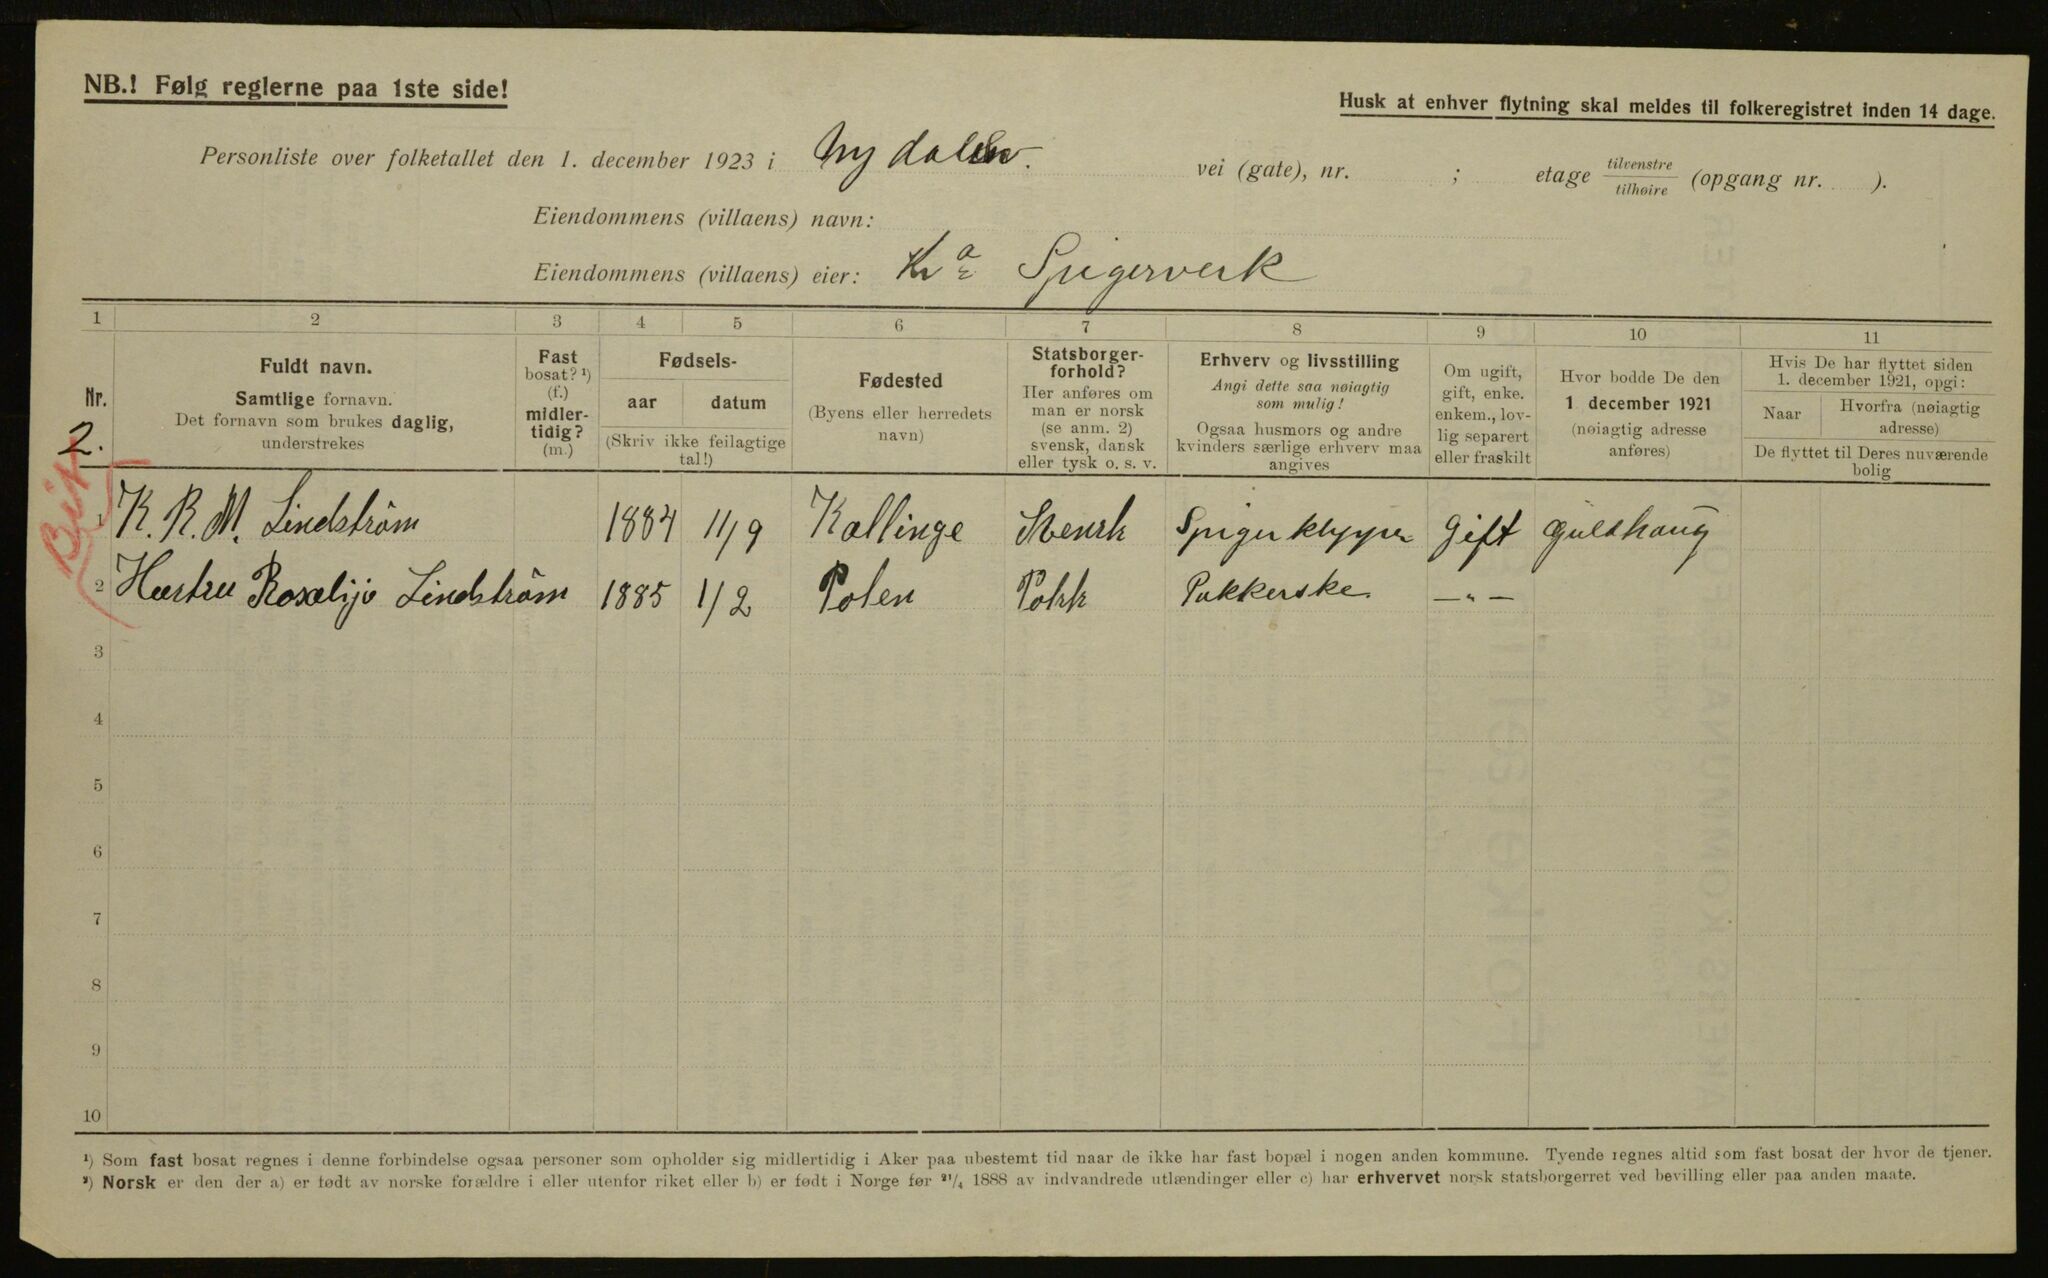 NB.! Følg reglerne paa 1ste side!
Husk at enhver flytning skal meldes til folkeregistret inden 14 dage.
Personliste over folketallet den 1. december 1923 i Nydalen. vei (gate), nr. ; etage tilvenstre/tilhøire (opgang nr. ).
Eiendommens (villaens) navn:
Eiendommens (villaens) eier: Kra Spigerverk
1 2 3 4 5 6 7 8 9 10 11
Nr.
2.
Fuldt navn.
Samtlige fornavn.
Det fornavn som brukes daglig,
understrekes
Fast
bosat? ¹)
(f.)
midler-
tidig?
(m.)
Fødsels-
aar datum
(Skriv ikke feilagtige
tal!)
Fødested
(Byens eller herredets
navn)
Statsborger-
forhold?
Her anføres om
man er norsk
(se anm. 2)
svensk, dansk
eller tysk o. s. v.
Erhverv og livsstilling
Angi dette saa nøiagtig
som mulig!
Ogsaa husmors og andre
kvinders særlige erhverv maa
angives
Om ugift,
gift, enke.
enkem., lov-
lig separert
eller fraskilt
Hvor bodde De den
1 december 1921
(nøiagtig adresse
anføres)
Hvis De har flyttet siden
1. december 1921, opgi:
Naar Hvorfra (nøiagtig
adresse)
De flyttet til Deres nuværende
bolig
1 K. R. M. Lindström 1884 11/9 Kallinge Svensk Spigerklypper Gift Guldhaug
2 Hustru Rosalije Lindström 1885 1/2 Polen Polsk Pakkerske. —„—
3
4
5
6
7
8
9
10
¹) Som fast bosat regnes i denne forbindelse ogsaa personer som opholder sig midlertidig i Aker paa ubestemt tid naar de ikke har fast bopæl i nogen anden kommune. Tyende regnes altid som fast bosat der hvor de tjener.
²) Norsk er den der a) er født av norske forældre i eller utenfor riket eller b) er født i Norge før ²¹/₄ 1888 av indvandrede utlændinger eller c) har erhvervet norsk statsborgerret ved bevilling eller paa anden maate.